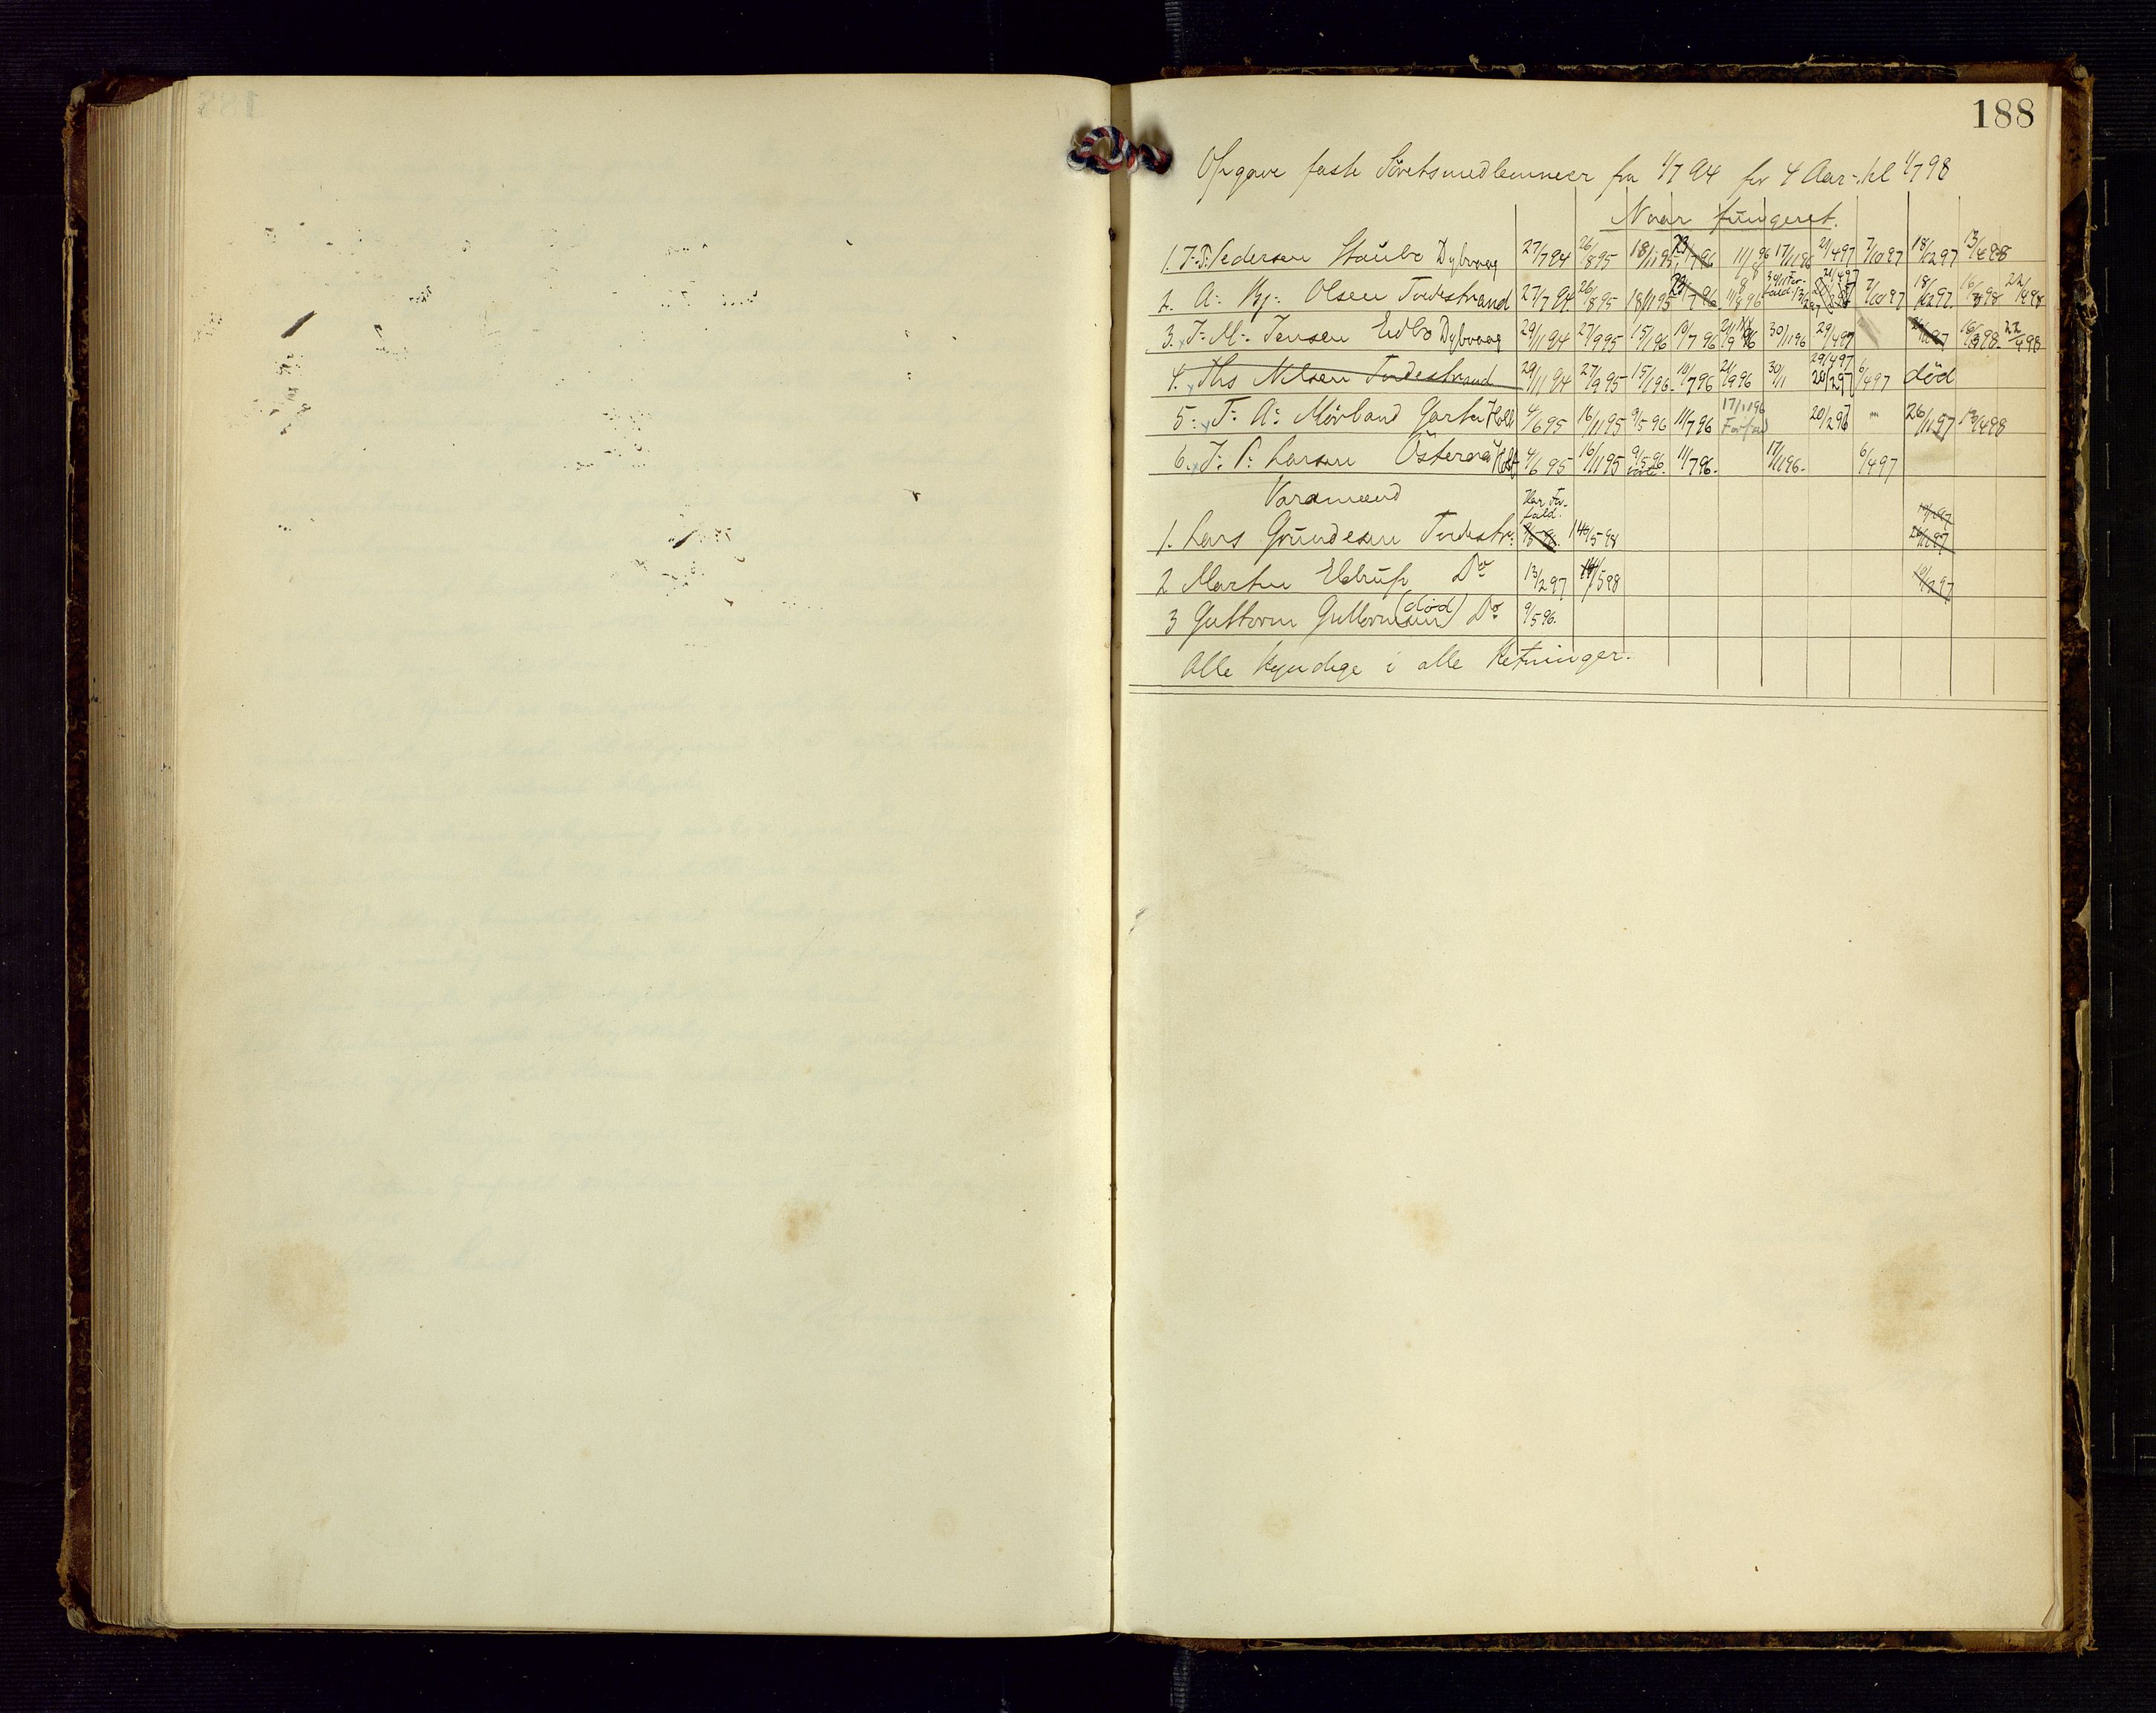 188
Opgave faste Söretsmedlemmer fra 1/7 94 for 4 Aar - til 1/7 98
Naar fungeret.
1. J. P. Pedersen Staubo Dybvaag 27/7 94 26/8 95 18/11 95 23/7 96 11/8 96 17/11 96 21/4 97 7/10 97 18/12 97 13/4 98
2. A. Kj. Olsen Tvedestrand 27/7 94 26/8 95 18/11 95 23/7 96 11/8 96 30/11 Forfald 13/2 97 21/4 97 7/10 97 18/12 97. 16/3 98 22/4 98
3. J. M. Jensen Eidbo Dybvaag 29/11 94 27/9 95 15/1 96 10/7 96 21/9 96 30/11 96 29/4 97 16/3 98. 22/4 98
4. Ths Nilsen Tvedestrand 29/11 94 27/9 95 15/1 96. 10/7 96 21/9 96 30/11 29/4 97 20/2 97 6/4 97 död
5. T. A. Mörland Garta Holt 4/6 95 16/11 95 9/5 96 11/7 96 17/11 96 Forfald 20/2 96 " 26/11 97 13/4 98
6. J. P. Larsen Österaa Holt 4/6 95 16/11 95 9/5 96. 11/7 96. 17/11 96. 6/4 97
Varamænd
1. Lars Grundesen Tvedestr. Har Forfald. 14/5 98 26/11 97
2 Martin Eldrup Do 13/2 97 14/5 98 10/12 97
3 Guttorm Guttormsen (död) Do 9/5 96.
Alle kyndige i alle Retninger.